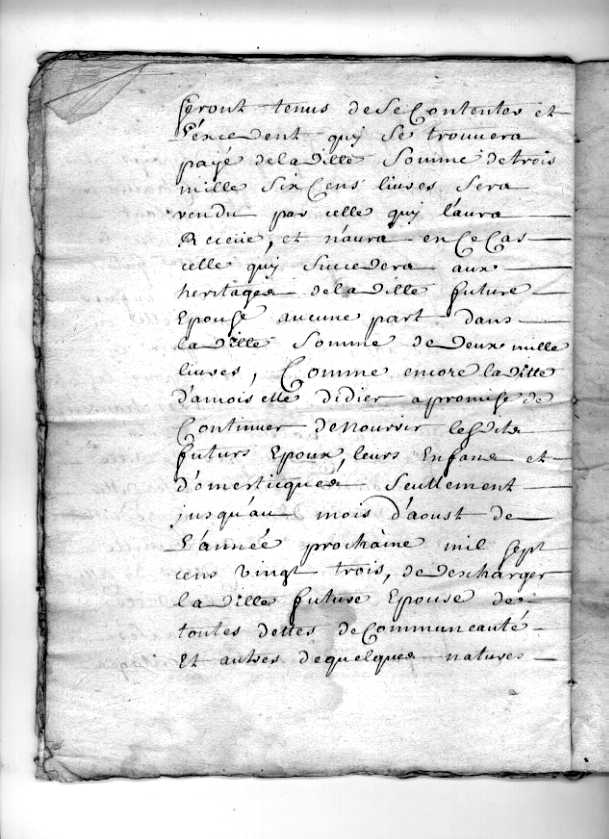 seront tenus de se Contenter et
l'éxcedent quy se trouvera
payé de laditte Somme de trois
mille Six Cens livres Sera
rendu par celle quy l'aura
Receüe, et n'aura en Ce Cas
celle quy Succedera aux
heritages de laditte future
Epouse aucune part dans
laditte Somme de Deux mille
livres, Comme encore laditte
d'amoiselle didier a promise de
Continuer de Nourrir lesdits
futurs Epoux, leurs Enfans et
d'omesticques Seullement
jusqu'au mois d'aoust de
L'année prochaine mil sept
cens vingt trois, de descharger
laditte future Epouse des
toutes dettes de Communeauté
Et autres de quelques natures